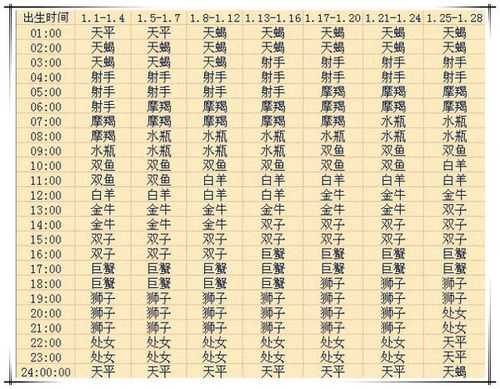 出生时间 1.1-1.4 1.5-1.7 1.8-1.12 1.13-1.16 1.17-1.20 1.21-1.24 1.25-1.28
01:00 天平 天平 天蝎 天蝎 天蝎 天蝎 天蝎
02:00 天蝎 天蝎 天蝎 天蝎 天蝎 天蝎 天蝎
03:00 天蝎 天蝎 天蝎 射手 射手 射手 射手
04:00 射手 射手 射手 射手 射手 射手 射手
05:00 射手 射手 射手 射手 摩羯 摩羯 摩羯
06:00 射手 摩羯 摩羯 摩羯 摩羯 摩羯 摩羯
07:00 摩羯 摩羯 摩羯 摩羯 摩羯 水瓶 水瓶
08:00 摩羯 水瓶 水瓶 水瓶 水瓶 水瓶 水瓶
09:00 水瓶 水瓶 水瓶 水瓶 双鱼 双鱼 双鱼
10:00 双鱼 双鱼 双鱼 双鱼 双鱼 双鱼 白羊
11:00 双鱼 双鱼 白羊 白羊 白羊 白羊 白羊
12:00 白羊 白羊 白羊 金牛 金牛 金牛 金牛
13:00 金牛 金牛 金牛 金牛 金牛 金牛 双子
14:00 金牛 金牛 金牛 双子 双子 双子 双子
15:00 双子 双子 双子 双子 双子 双子 双子
16:00 双子 双子 双子 巨蟹 巨蟹 巨蟹 巨蟹
17:00 巨蟹 巨蟹 巨蟹 巨蟹 巨蟹 巨蟹 巨蟹
18:00 巨蟹 巨蟹 巨蟹 巨蟹 狮子 狮子 狮子
19:00 狮子 狮子 狮子 狮子 狮子 狮子 狮子
20:00 狮子 狮子 狮子 狮子 狮子 狮子 处女
21:00 狮子 狮子 狮子 处女 处女 处女 处女
22:00 处女 处女 处女 处女 处女 处女 天平
23:00 处女 处女 处女 处女 处女 处女 天平
24:00:00 天平 天平 天平 天平 天平 天平 天蝎